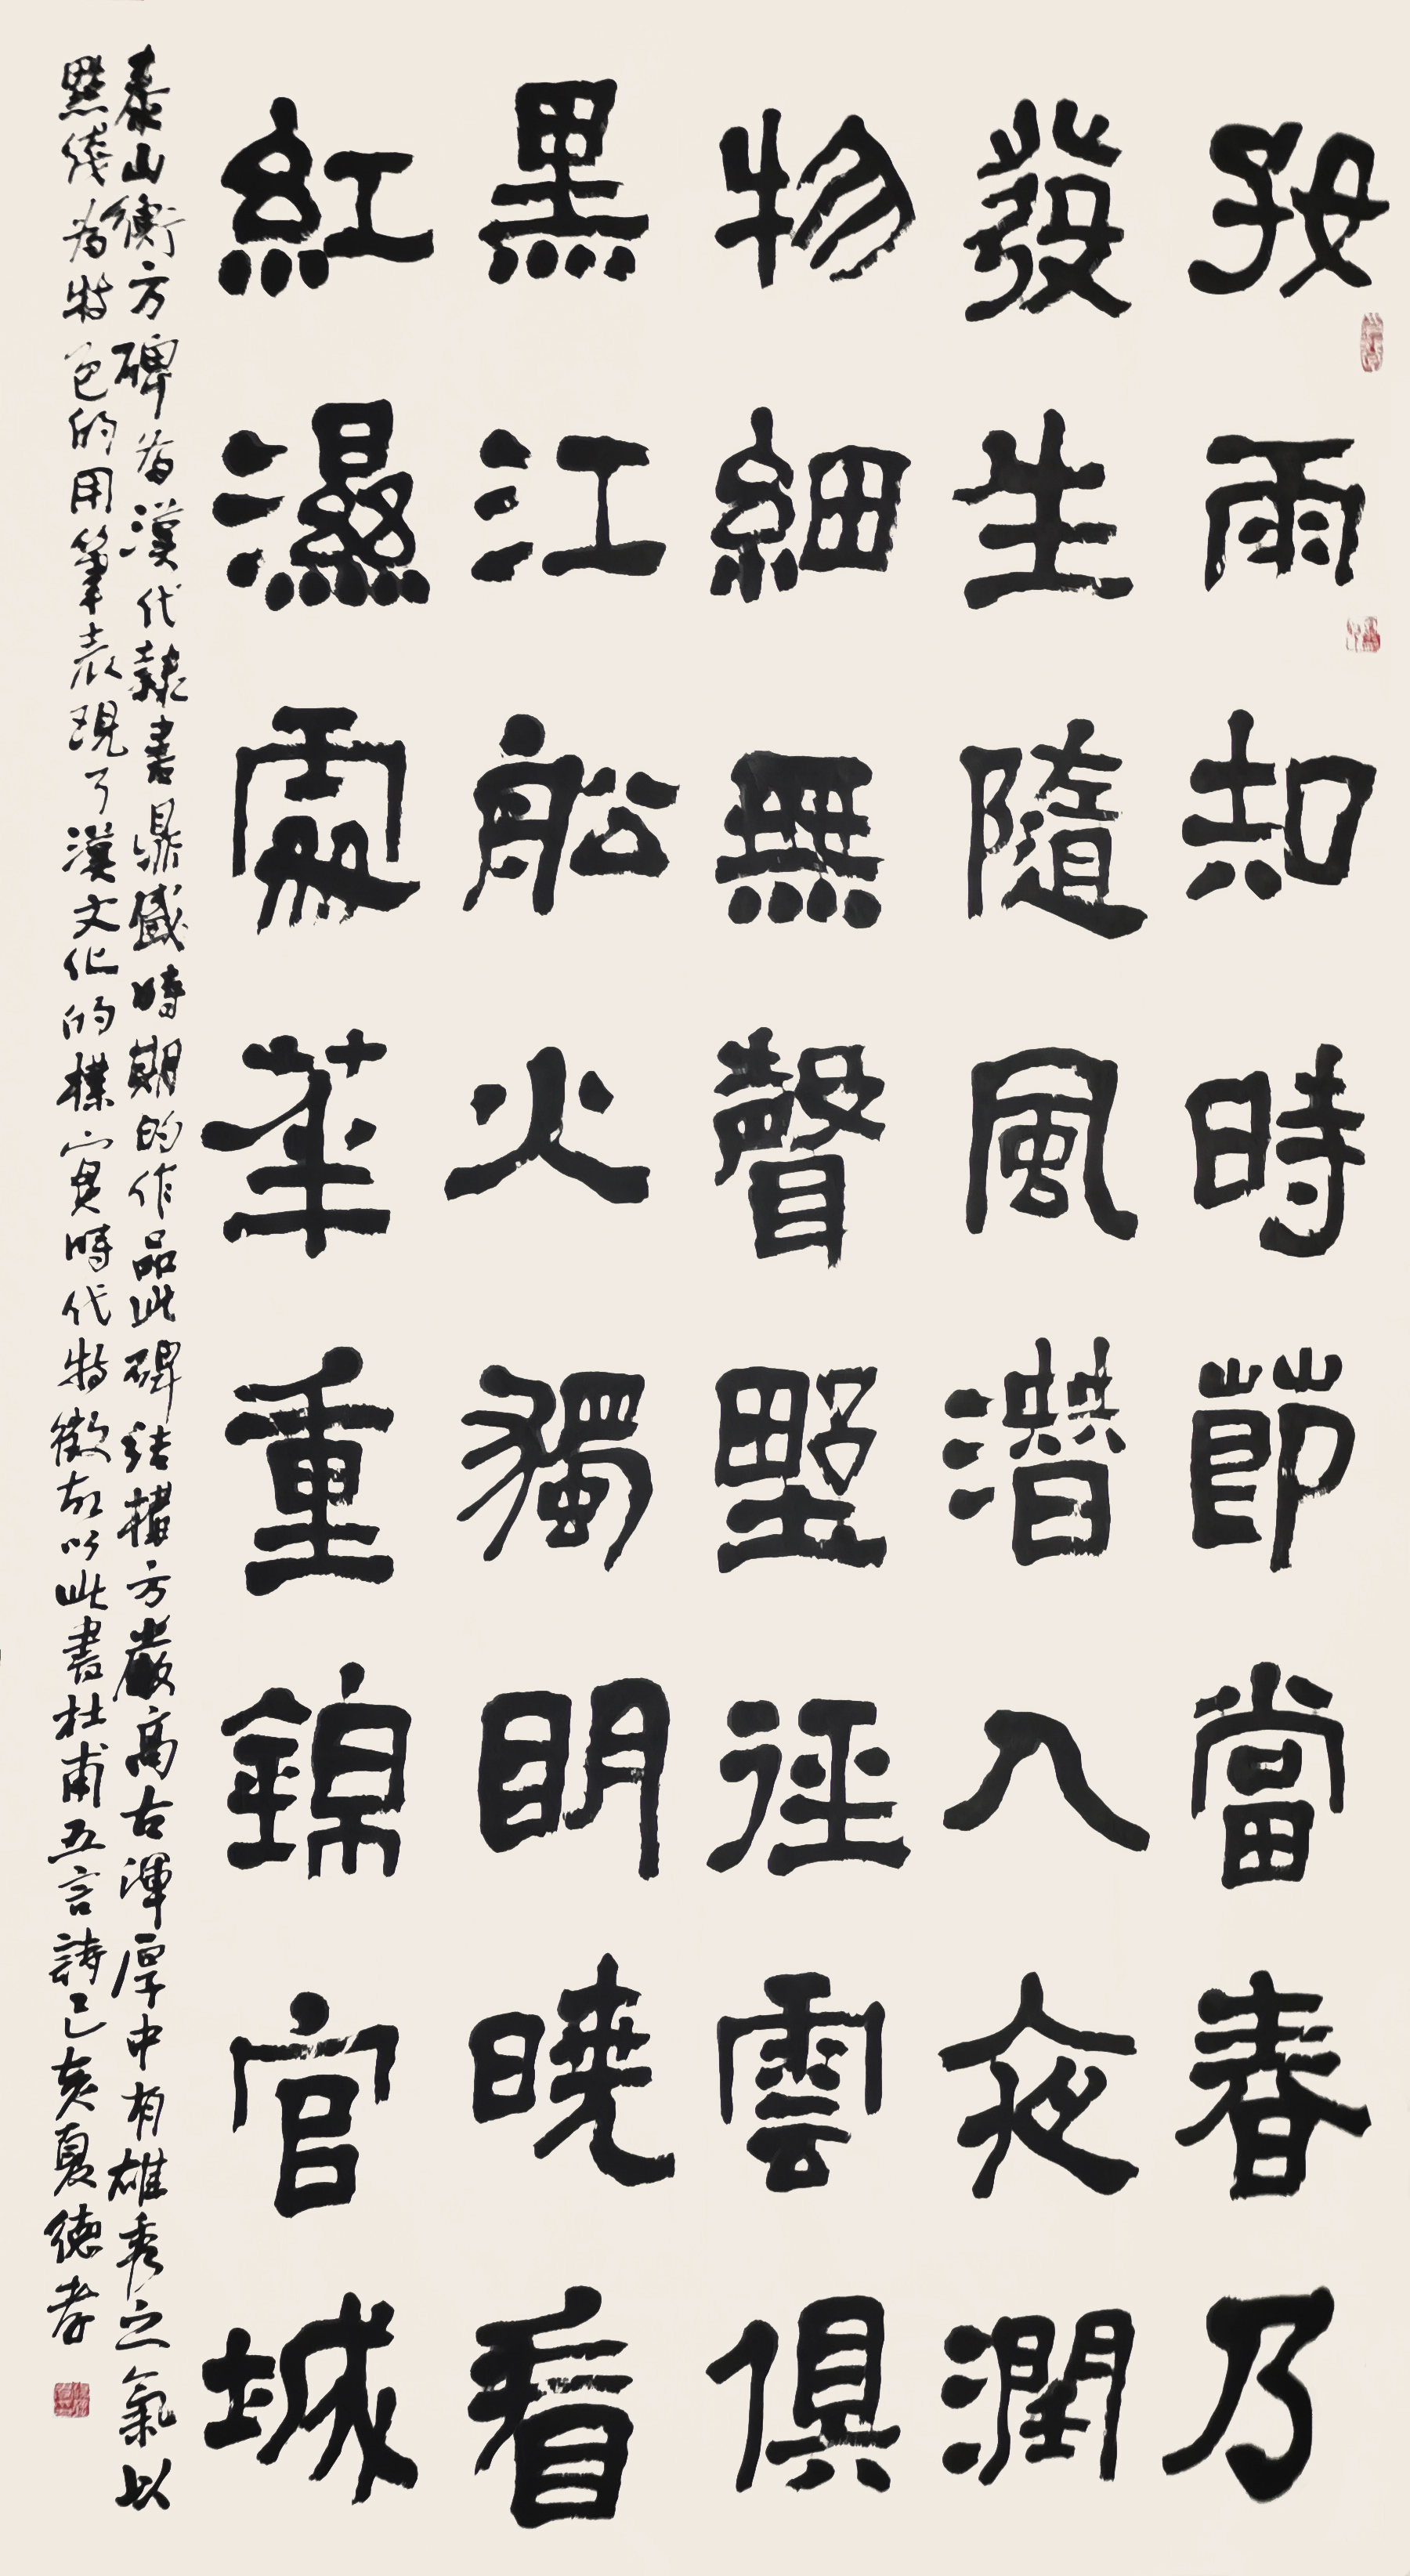 好雨知時節當春乃
發生隨風潛入夜潤
物細無聲野徑雲俱
黑江舩火獨眀曉看
紅濕處華重錦官城
泰山衡方碑為漢代隸書鼎盛時期的作品此碑結構方嚴高古渾厚中有雄秀之氣以
點綫為特色的用筆表現了漢文化的樸實時代特徵故以此書杜甫五言詩己亥夏德孝